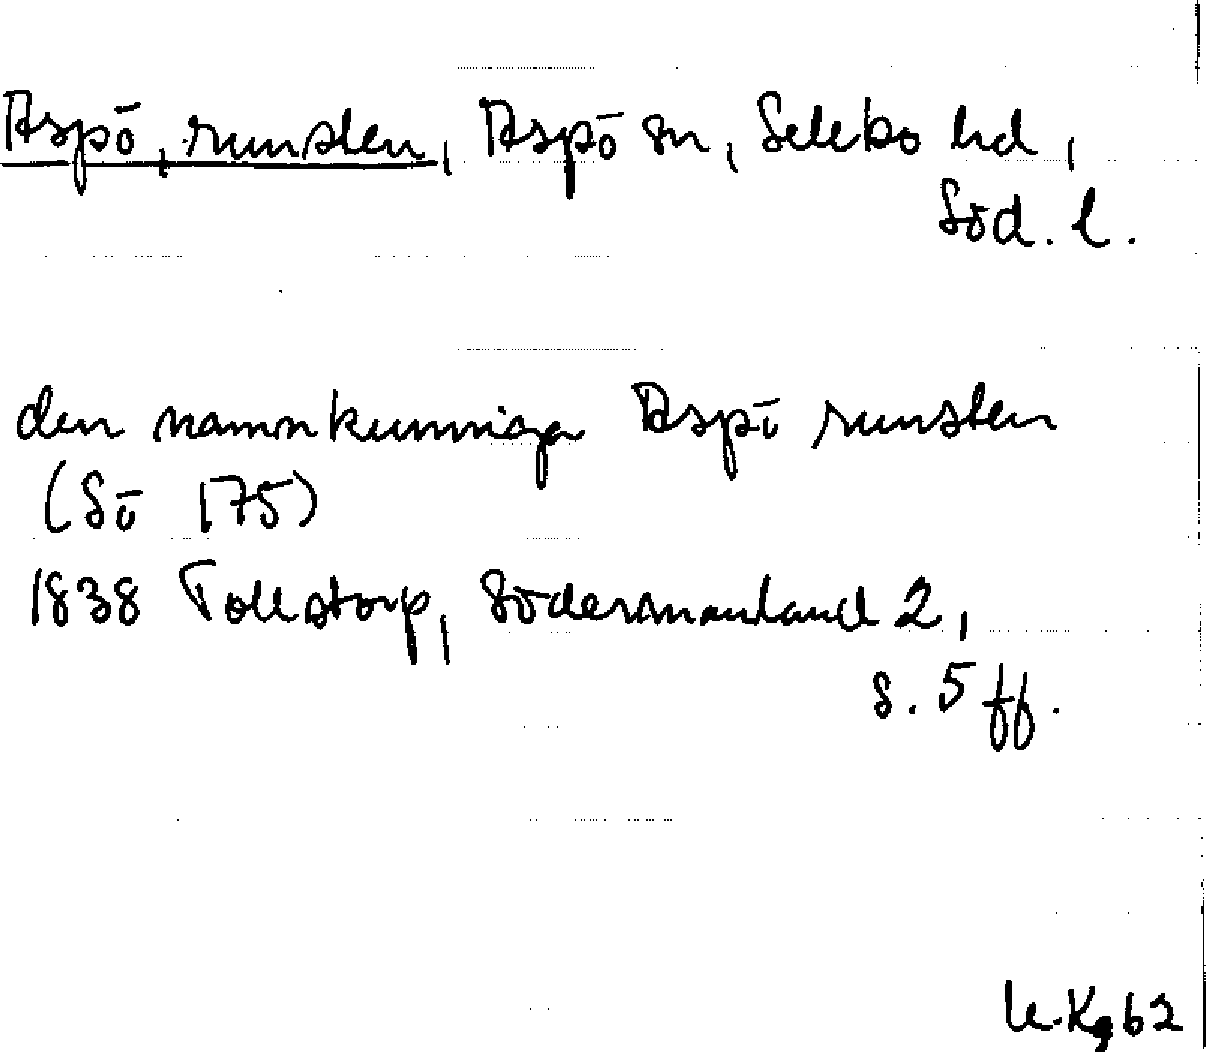 Aspö, runsten, Aspö sn, Selebo hd,
Söd. l.
den namnkunniga Aspö runsten
(Sö 175)
1838 Tollstorp, Södermanland 2,
s. 5 ff.
62